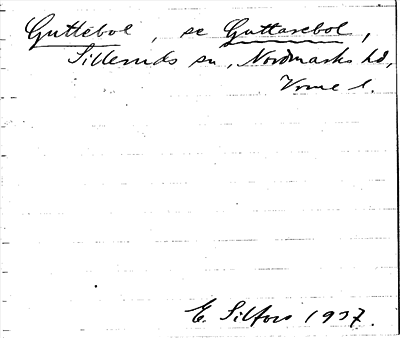 Guttebol, se Guttarebol,
Silleruds sn, Nordmarks hd,
Vrml l.
E. Silfors 1937.